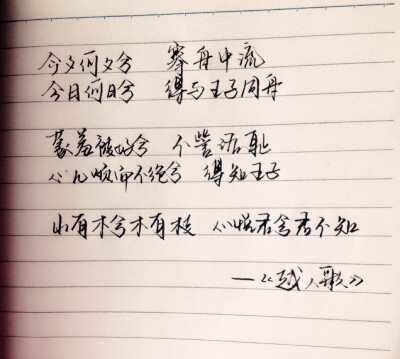 今夕何夕兮 搴舟中流
今日何日兮 得与王子同舟
蒙羞被好兮 不訾诟耻
心几烦而不绝兮 得知王子
山有木兮木有枝 心悦君兮君不知
—《越人歌》